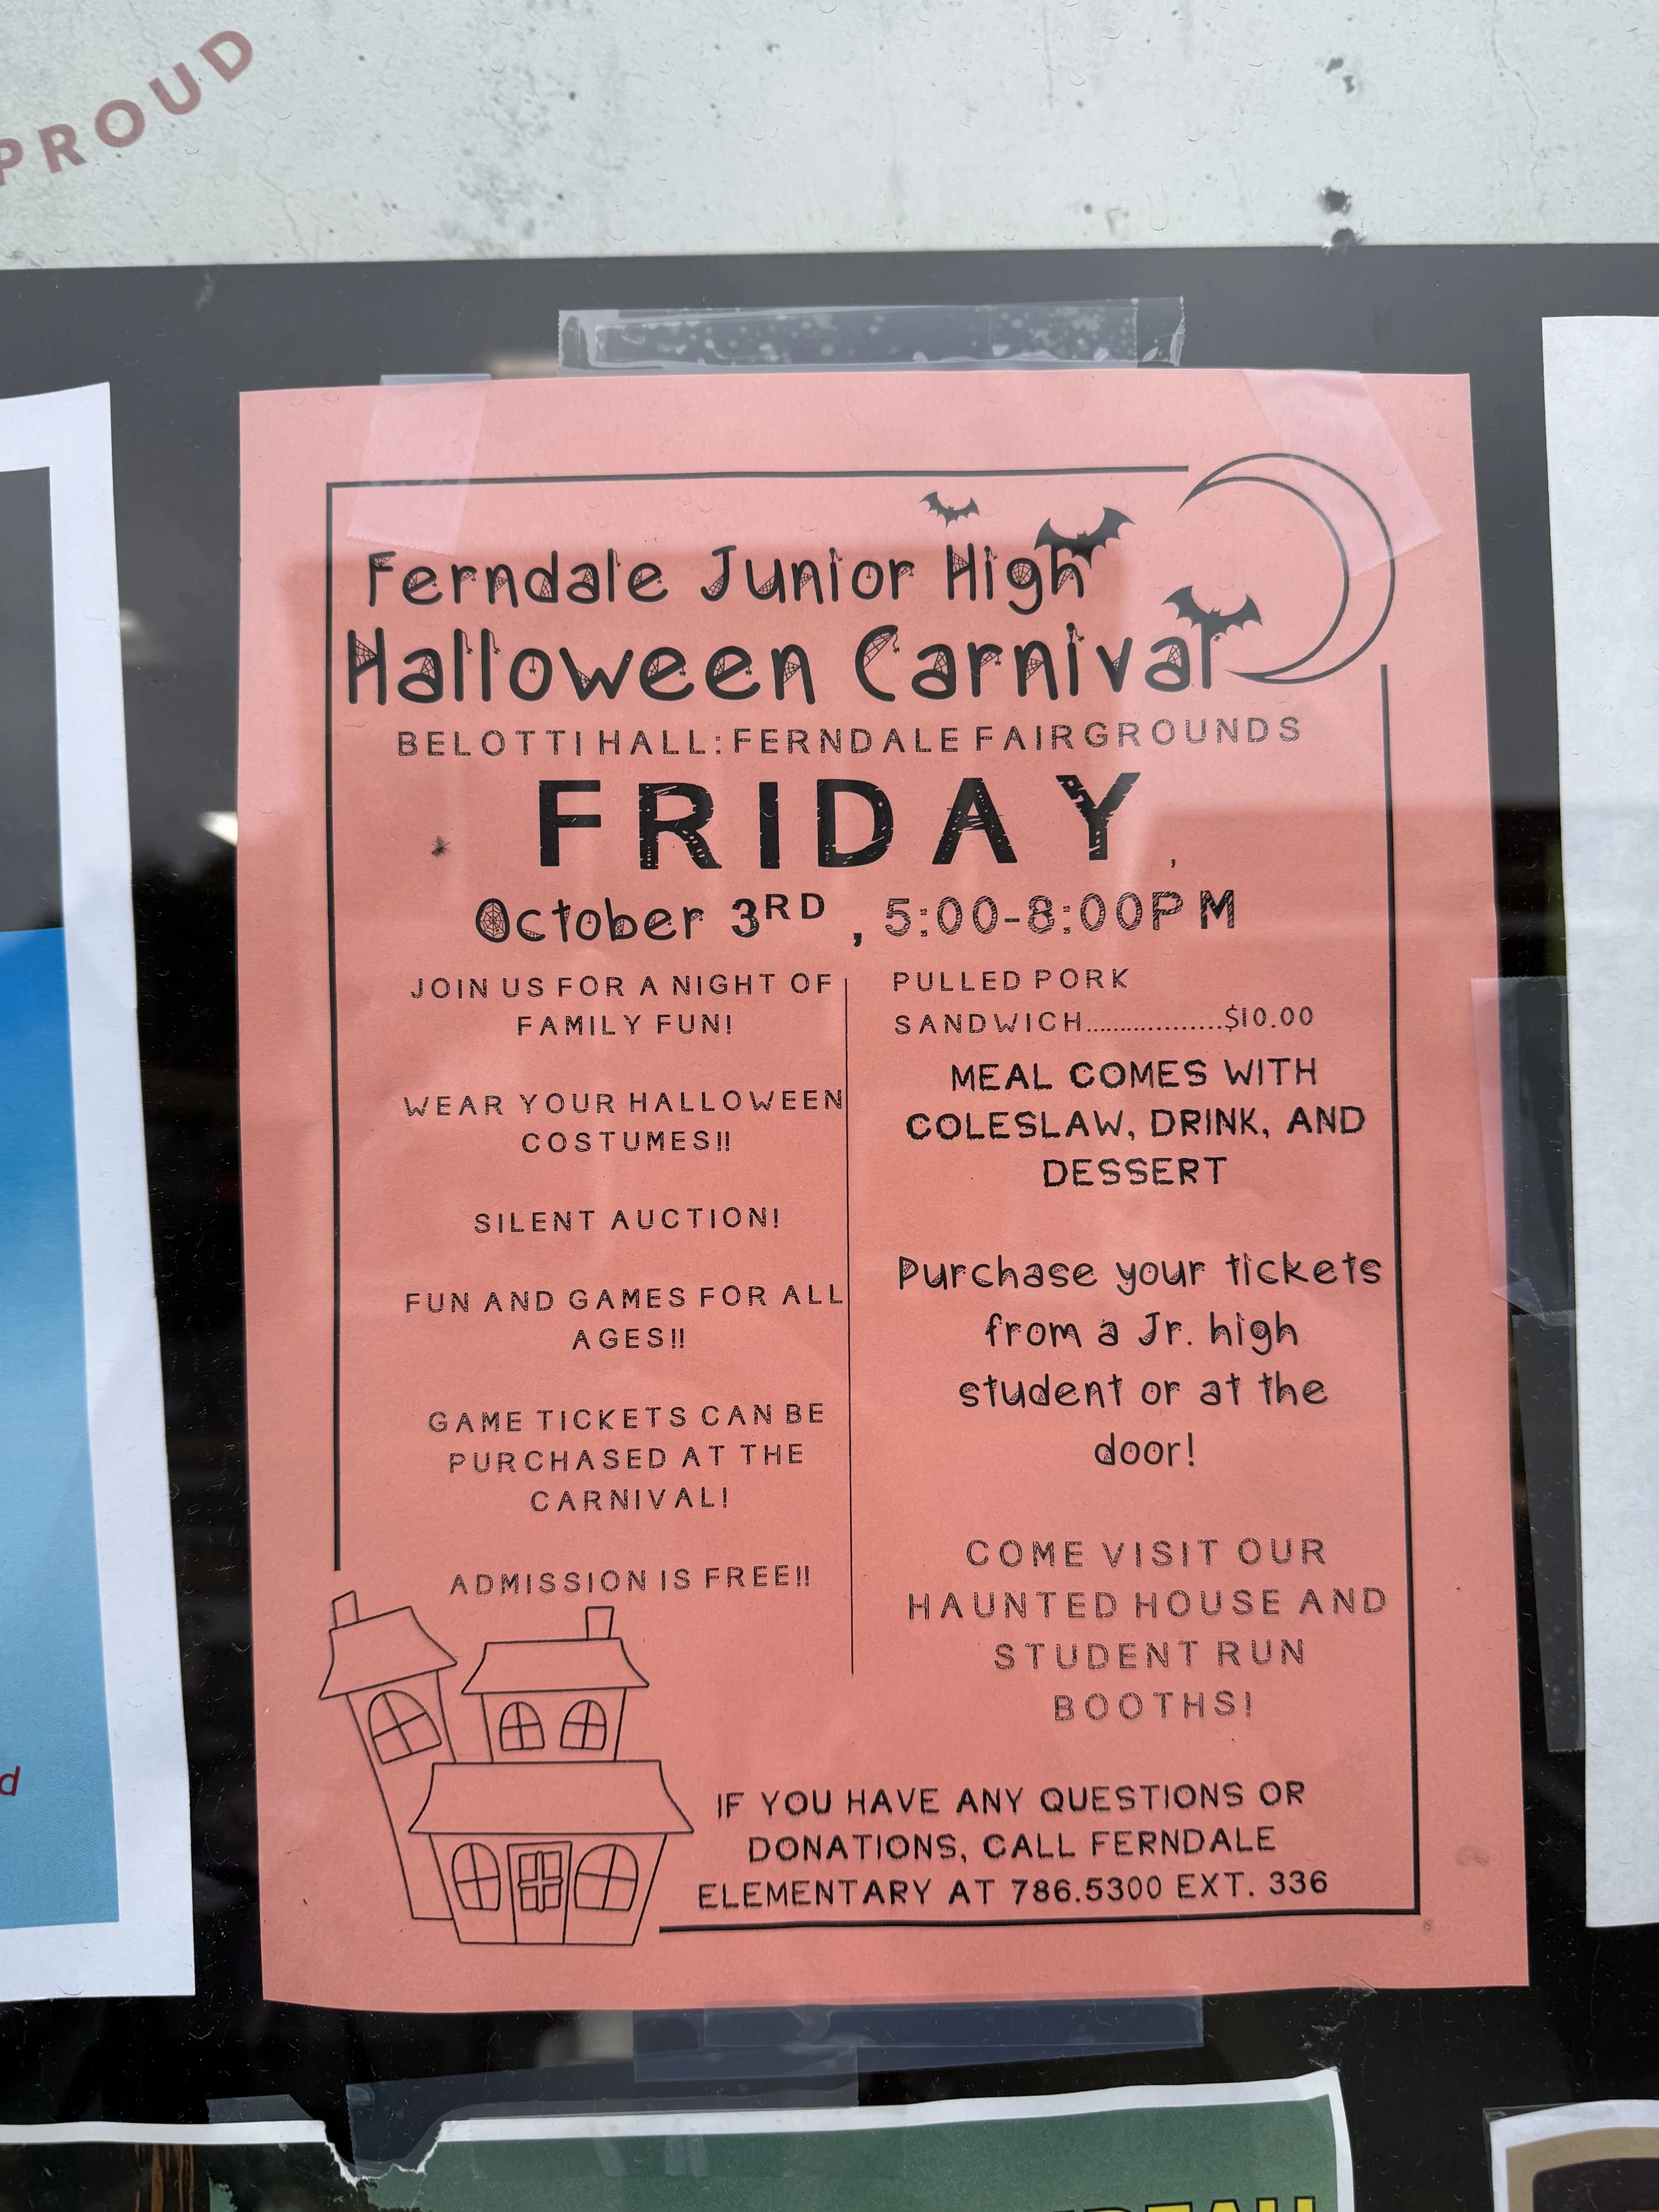 PROUD
Ferndale Junior High
Halloween Carnival
BELOTTI HALL: FERNDALE FAIRGROUNDS
FRIDAY,
October 3RD, 5:00-8:00PM
JOIN US FOR A NIGHT OF
FAMILY FUN!
WEAR YOUR HALLOWEEN
COSTUMES!!
SILENT AUCTION!
FUN AND GAMES FOR ALL
AGES!!
GAME TICKETS CAN BE
PURCHASED AT THE
CARNIVAL!
ADMISSION IS FREE!!
PULLED PORK
SANDWICH..................$10.00
MEAL COMES WITH
COLESLAW, DRINK, AND
DESSERT
Purchase your tickets
from a Jr. high
student or at the
door!
COME VISIT OUR
HAUNTED HOUSE AND
STUDENT RUN
BOOTHS!
IF YOU HAVE ANY QUESTIONS OR
DONATIONS, CALL FERNDALE
ELEMENTARY AT 786.5300 EXT. 336